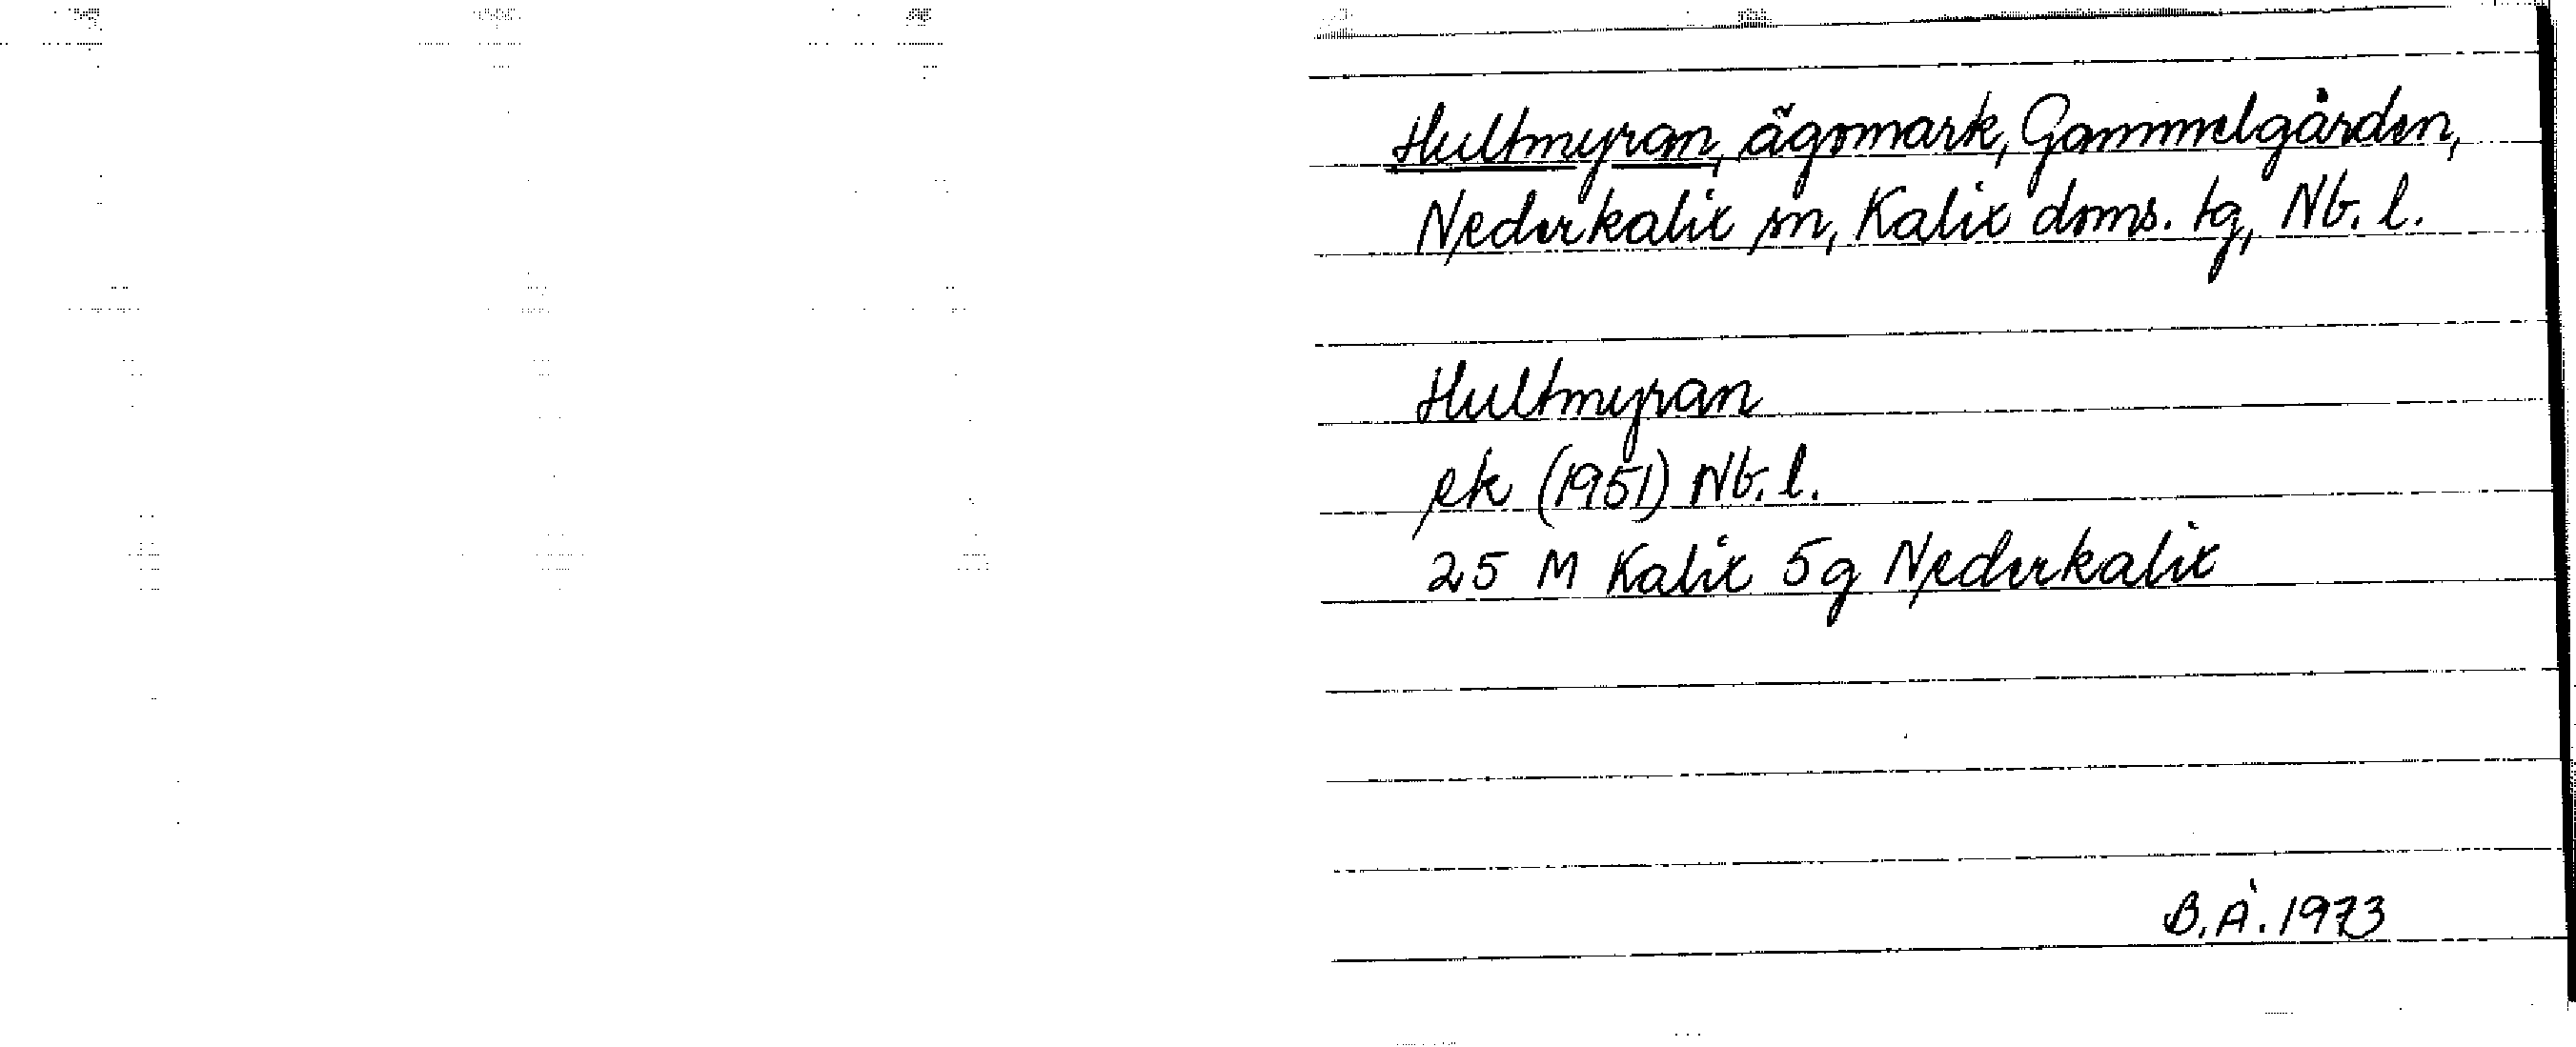 Hultmyran, ägomark, Gammelgården,
Nederkalix sn, Kalix doms. tg, Nb. l.
Hultmyran
ek (1951) Nb. l.
25 M Kalix 5g Nederkalix
B.Å. 1973